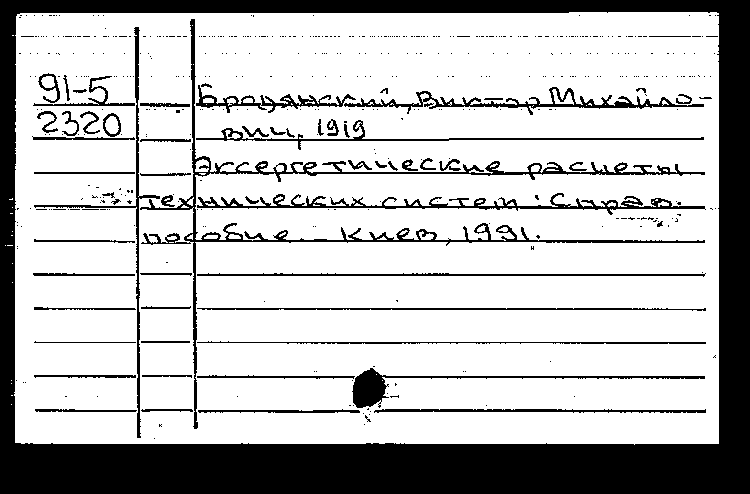 91-5 Бродянский, Виктор Михайло-
2320 вич, 1919
Эксергетические расчеты
технических систем : Справ.
пособие. – Киев, 1991.